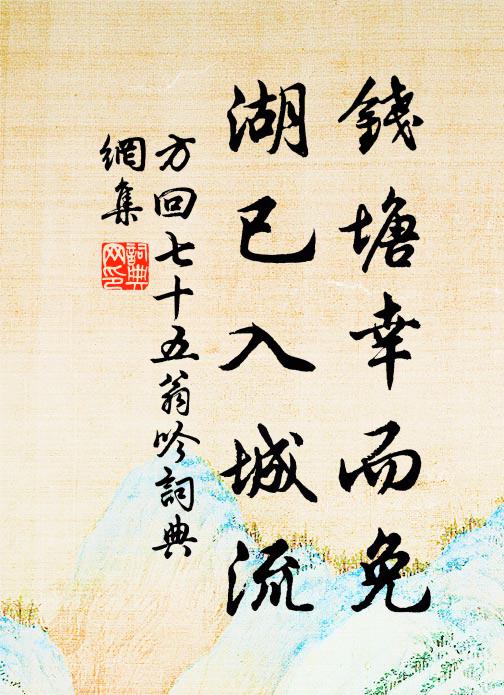 錢塘幸而免
湖已入城流
方回七十五翁吟詞典
網集
詞典
网印